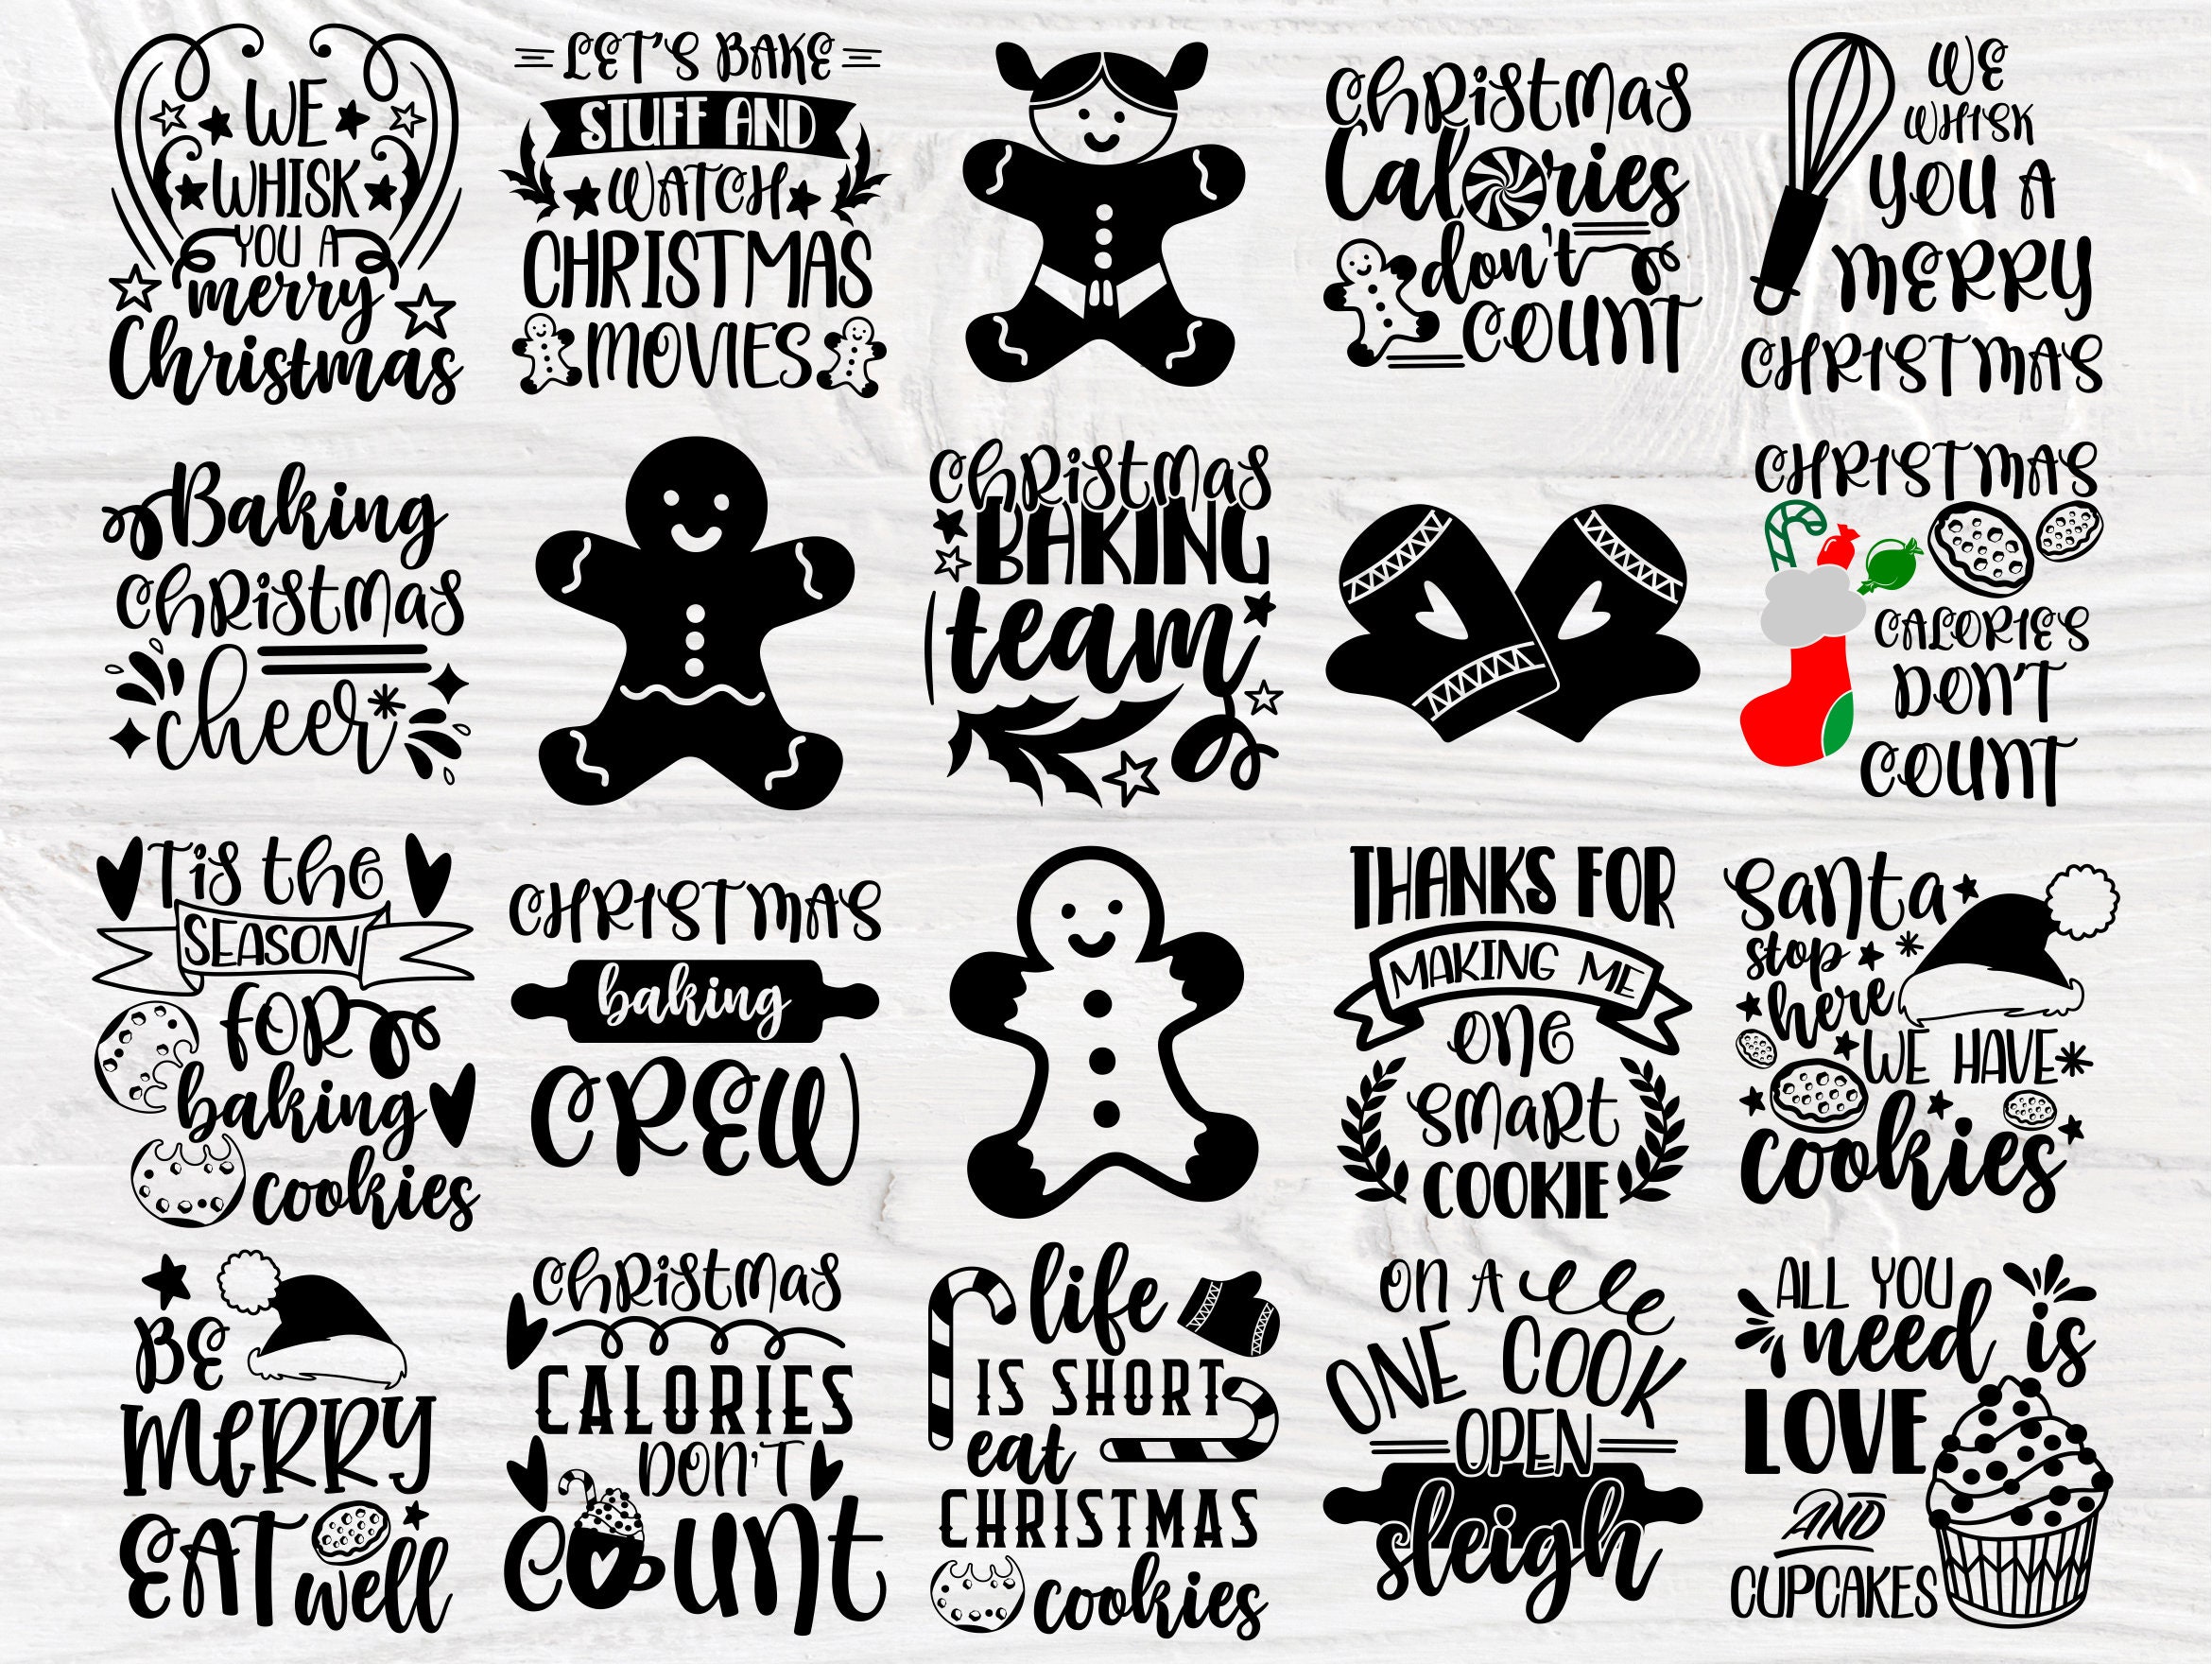 WE
WHISK
YOU A
merry
Christmas
LET'S BAKE
STUFF AND
WATCH
CHRISTMAS
MOVIES
Christmas
Calories
don't
COUNT
WE
WHISK
YOU A
MERRY
CHRISTMAS
Baking
Christmas
cheer
Christmas
BAKING
team
CHRISTMAS
CALORIE'S
DON'T
COUNT
Tis the
SEASON
FOR
baking
cookies
CHRISTMAS
baking
CREW
THANKS FOR
MAKING ME
ONE
SMART
COOKIE
Santa
stop
here
WE HAVE
cookies
BE
MERRY
EAT
well
Christmas
CALORIES
DON'T
count
life
IS SHORT
eat
CHRISTMAS
cookies
ON A
ONE COOK
OPEN
sleigh
ALL YOU
need is
LOVE
AND
CUPCAKES